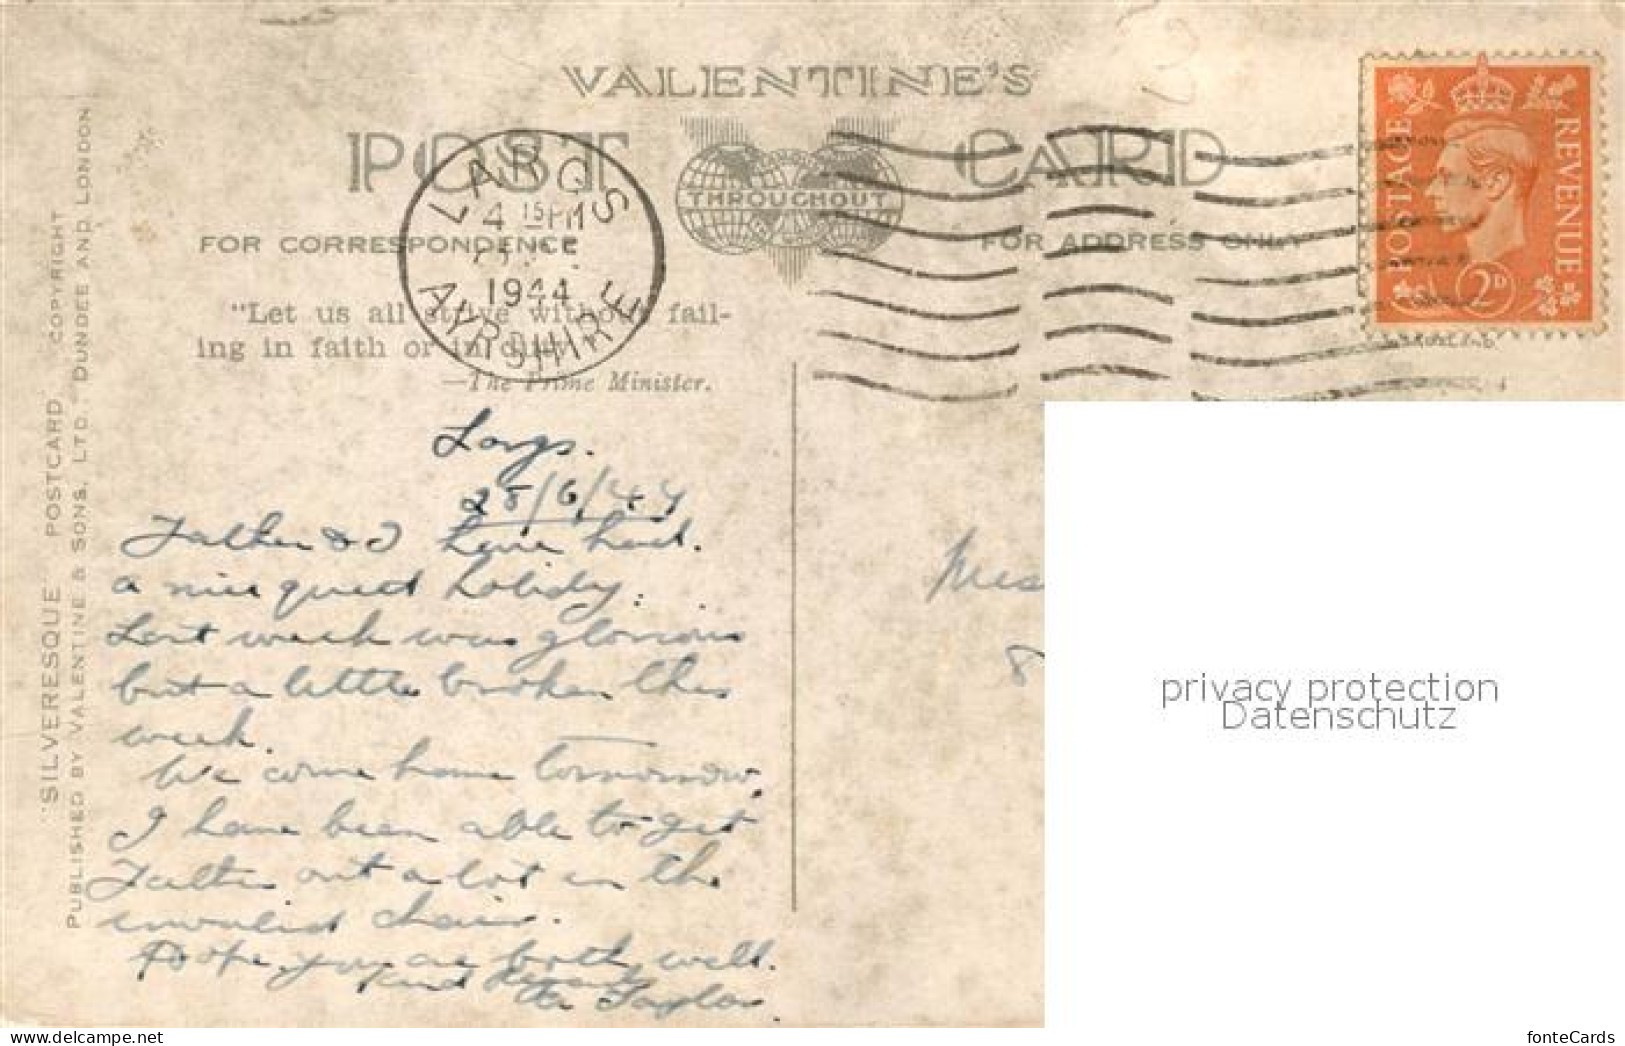 VALENTINE'S
POST CARD
THROUGHOUT
FOR CORRESPONDENCE
FOR ADDRESS ONLY
LARGS
4 15 PM
1944
AYRSHIRE
POSTAGE
REVENUE
2D
"Let us all strive without fail-
ing in faith or in duty"
—The Prime Minister.
'SILVERESQUE' POSTCARD. COPYRIGHT
PUBLISHED BY VALENTINE & SONS, LTD., DUNDEE AND LONDON
Largs.
28/6/44
Father & I have had
a nice quiet holiday.
Last week was glorious
but a little broken this
week.
We come home tomorrow.
I have been able to get
Father out a lot in the
invalid chair.
Hope you are both well.
Kind Regards
Taylor
8
privacy protection
Datenschutz
www.delcampe.net
fonteCards